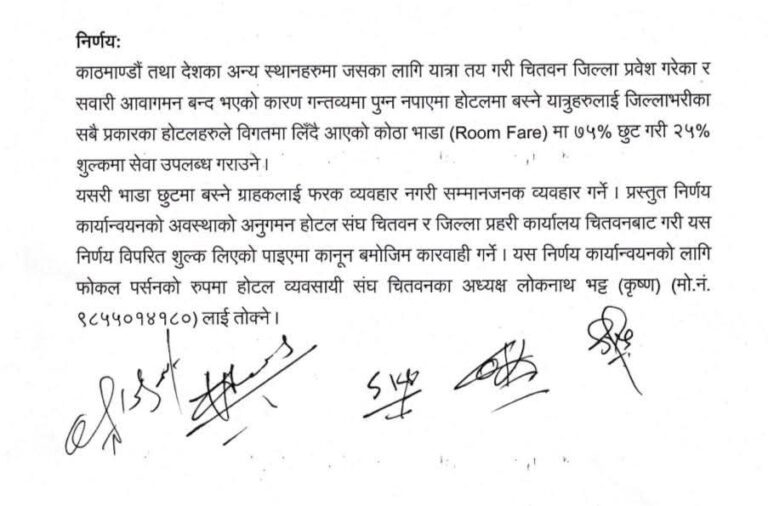 निर्णय:
काठमाण्डौं तथा देशका अन्य स्थानहरुमा जसका लागि यात्रा तय गरी चितवन जिल्ला प्रवेश गरेका र
सवारी आवागमन बन्द भएको कारण गन्तव्यमा पुग्न नपाएमा होटलमा बस्ने यात्रुहरुलाई जिल्लाभरीका
सबै प्रकारका होटलहरुले विगतमा लिँदै आएको कोठा भाडा (Room Fare) मा ७५% छुट गरी २५%
शुल्कमा सेवा उपलब्ध गराउने ।
यसरी भाडा छुटमा बस्ने ग्राहकलाई फरक व्यवहार नगरी सम्मानजनक व्यवहार गर्ने । प्रस्तुत निर्णय
कार्यान्वयनको अवस्थाको अनुगमन होटल संघ चितवन र जिल्ला प्रहरी कार्यालय चितवनबाट गरी यस
निर्णय विपरित शुल्क लिएको पाइएमा कानून बमोजिम कारवाही गर्ने । यस निर्णय कार्यान्वयनको लागि
फोकल पर्सनको रुपमा होटल व्यवसायी संघ चितवनका अध्यक्ष लोकनाथ भट्ट (कृष्ण) (मो.नं.
९८५५०१४१८०) लाई तोक्ने ।